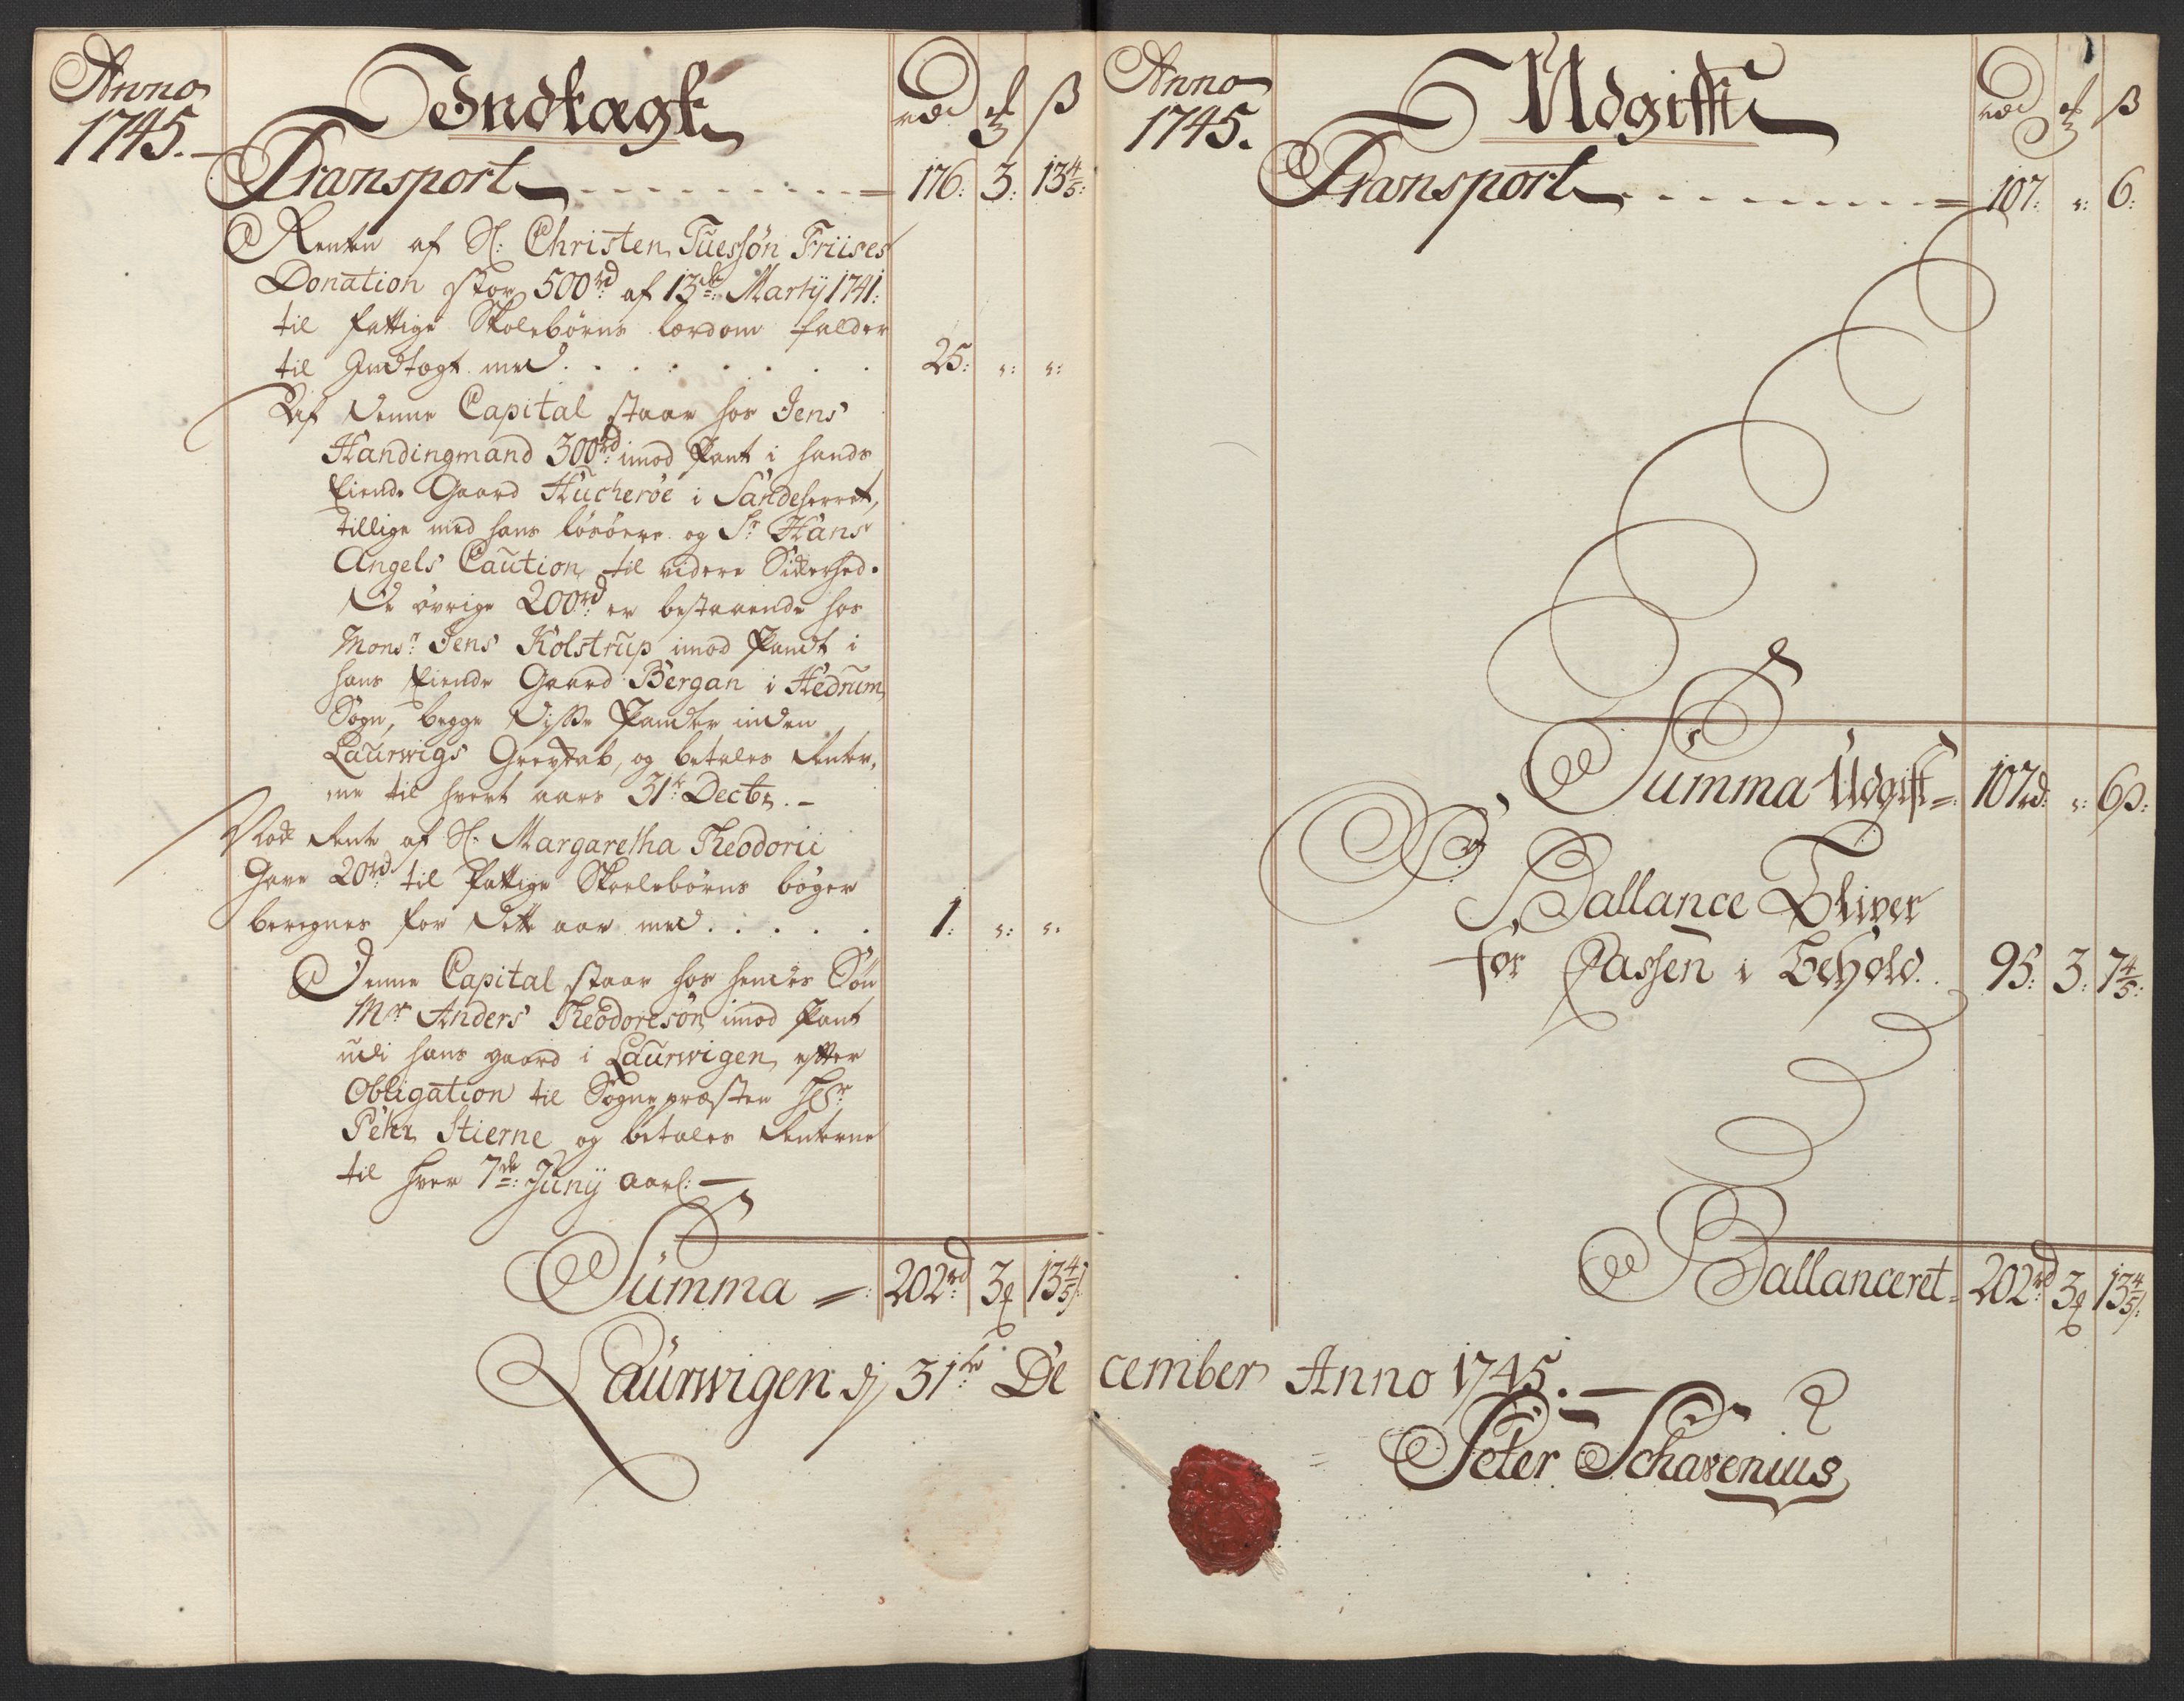 Anno
1745.
Indtægt
rd ort ß
Transport 176: 3: 13 4/5:
Renten af Sl: Christen Tuessøn Friises
Donation stor 500rd: af 13de: Martÿ 1741:
til fattige Skolebørns lærdom falder
til Indtægt med 25: " : " :
Af denne Capital staar hos Jens
Handingmand 300rd: imod Pant i hands
Eiende Gaard Hucherøe i Sandeherret,
tillige med hans løsøere og Sr Hans
Angels Caution til videre Sikkerhed.
De øvrige 200rd: er bestaaende hos
Monsr: Jens Kolstrup imod Pandt i
hans Eiende Gaard Bergan i Hedrum
Sogn, begge disse Pandter inden
Laurwigs Grevskab, og betales Renter,
ne til hvert aars 31te Decbr. -
Nok Rente af Sl. Margaretha Theodorii
Gave 20rd til fattige Skoelebørns bøger
beregnes for dette aar med 1: " : " :
Denne Capital staar hos hendes Søn
Mr Anders Theodoresøn imod Pant
udi hans gaard i Laurwigen efter
Obligation til Sognepræsten Hr:
Pehr Stierne og betales Renterne
til hver 7de: Junÿ aarl: —
Summa = 202rd 3 ort 13 4/5 ß:
Laurwigen dj 31te De
Anno
1745.
Udgifft
rd ort ß
Transport 107: " : 6:
Summa Udgift = 107rd: " : 6ß:
Ballance Bliver
for Cassen i Behold. 95: 3: 7 4/5:
Ballanceret = 202rd 3 ort 13 4/5 ß:
cember Anno 1745. —
Peter Schavenius